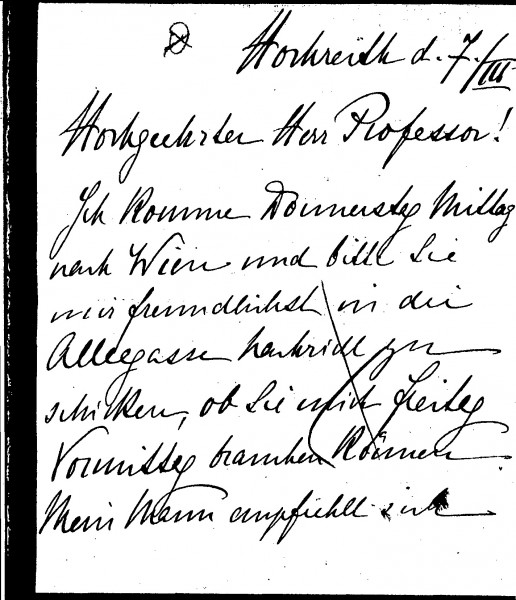 Hochreith d. 7./III.
Hochgeehrter Herr Professor!
Ich komme Donnerstag Mittag
nach Wien und bitte Sie
mir freundlichst in die
Alleegasse Nachricht zu
schicken, ob Sie mich Freitag
Vormittag brauchen können.
Mein Mann empfiehlt sich